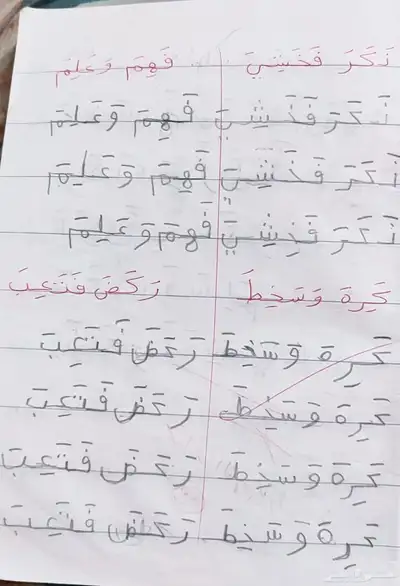 ذَكَرَ فَخَشِيَ فَهِمَ وَعَلِمَ
ذَكَرَ فَخَشِيَ فَهِمَ وَعَلِمَ
ذَكَرَ فَخَشِيَ فَهِمَ وَعَلِمَ
ذَكَرَ فَخَشِيَ فَهِمَ وَعَلِمَ
كَرِهَ وَسَخِطَ رَكَضَ فَتَعِبَ
كَرِهَ وَسَخِطَ رَكَضَ فَتَعِبَ
كَرِهَ وَسَخِطَ رَكَضَ فَتَعِبَ
كَرِهَ وَسَخِطَ رَكَضَ فَتَعِبَ
كَرِهَ وَسَخِطَ رَكَضَ فَتَعِبَ